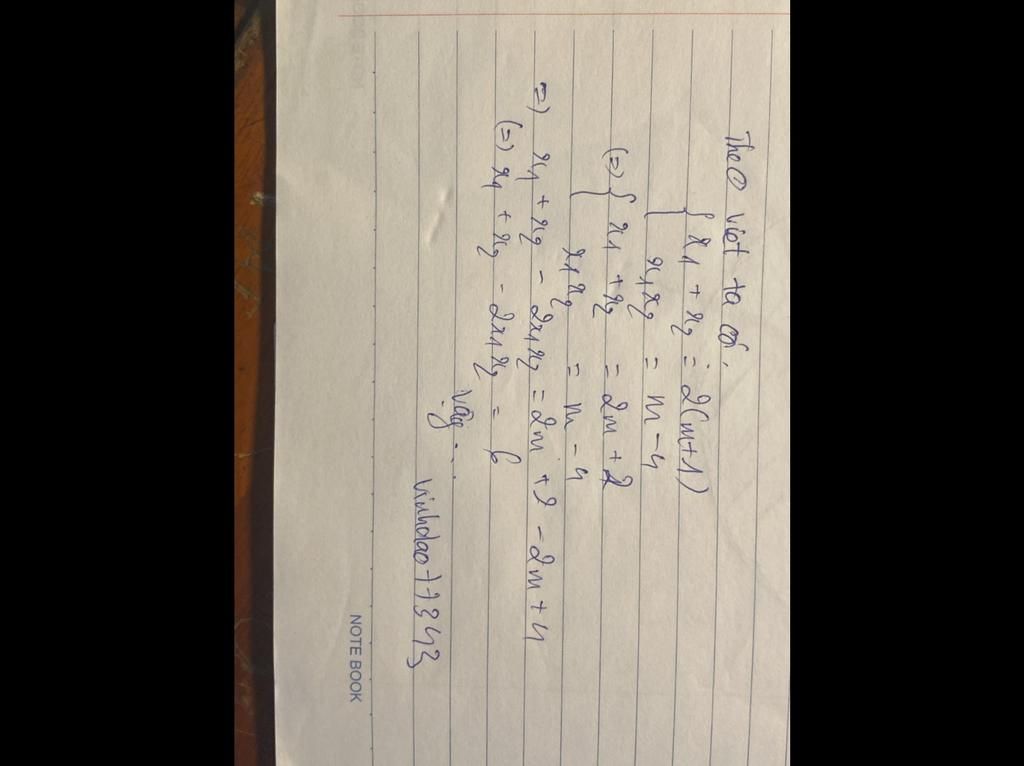 Theo viet ta có.
{ x₁ + x₂ = 2(m+1)
x₁x₂ = m - 4
(=) { x₁ + x₂ = 2m + 2
x₁x₂ = m - 4
=) x₁ + x₂ - 2x₁x₂ = 2m + 2 - 2m + 4
(=) x₁ + x₂ - 2x₁x₂ = 6
Vậy ...
vinhdao77343
NOTE BOOK